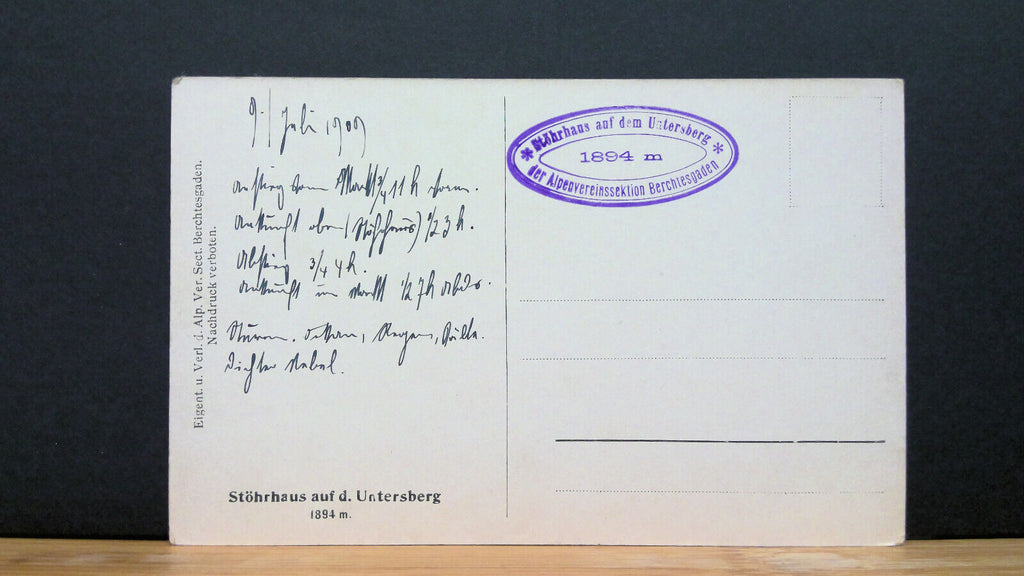 9. Juli 1909
Anstieg vom Markt 3/4 11 h vorm.
Ankunft oben (Stöhrhaus) 1/2 3 h.
Abstieg 3/4 4 h.
Ankunft im Markt 1/2 7 h abds.
Sturm. Orkan, Regen, Kälte.
Dichter Nebel.
Eigent. u. Verl. d. Alp. Ver. Sect. Berchtesgaden.
Nachdruck verboten.
Stöhrhaus auf d. Untersberg
1894 m.
* Stöhrhaus auf dem Untersberg *
1894 m
der Alpenvereinssektion Berchtesgaden